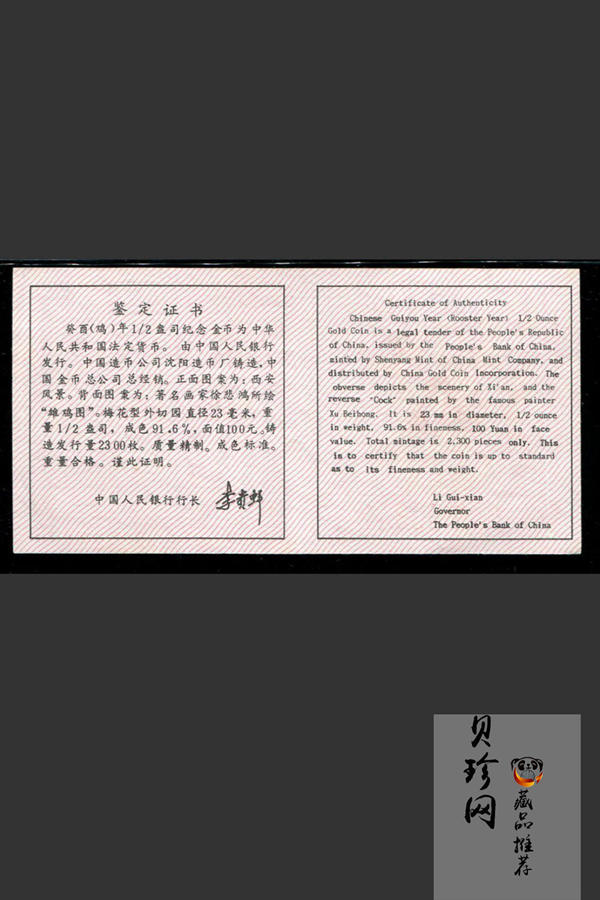 鉴定证书
癸酉(鸡)年1/2盎司纪念金币为中华
人民共和国法定货币。由中国人民银行
发行。中国造币公司沈阳造币厂铸造,中
国金币总公司总经销。正面图案为:西安
风景。背面图案为:著名画家徐悲鸿所绘
“雄鸡图”。梅花型外切园直径23毫米,重
量1/2盎司,成色91.6%,面值100元。铸
造发行量2300枚。质量精制。成色标准。
重量合格。谨此证明。
中国人民银行行长 李贵鲜
Certificate of Authenticity
Chinese Guiyou Year (Rooster Year) 1/2 Ounce
Gold Coin is a legal tender of the People's Republic
of China, issued by the People's Bank of China,
minted by Shenyang Mint of China Mint Company, and
distributed by China Gold Coin Incorporation. The
obverse depicts the scenery of Xi'an, and the
reverse "Cock" painted by the famous painter
Xu Beihong. It is 23 mm in diameter, 1/2 ounce
in weight, 91.6% in fineness, 100 Yuan in face
value. Total mintage is 2,300 pieces only. This
is to certify that the coin is up to standard
as to its fineness and weight.
Li Gui-xian
Governor
The People's Bank of China
贝珍网
藏品推荐